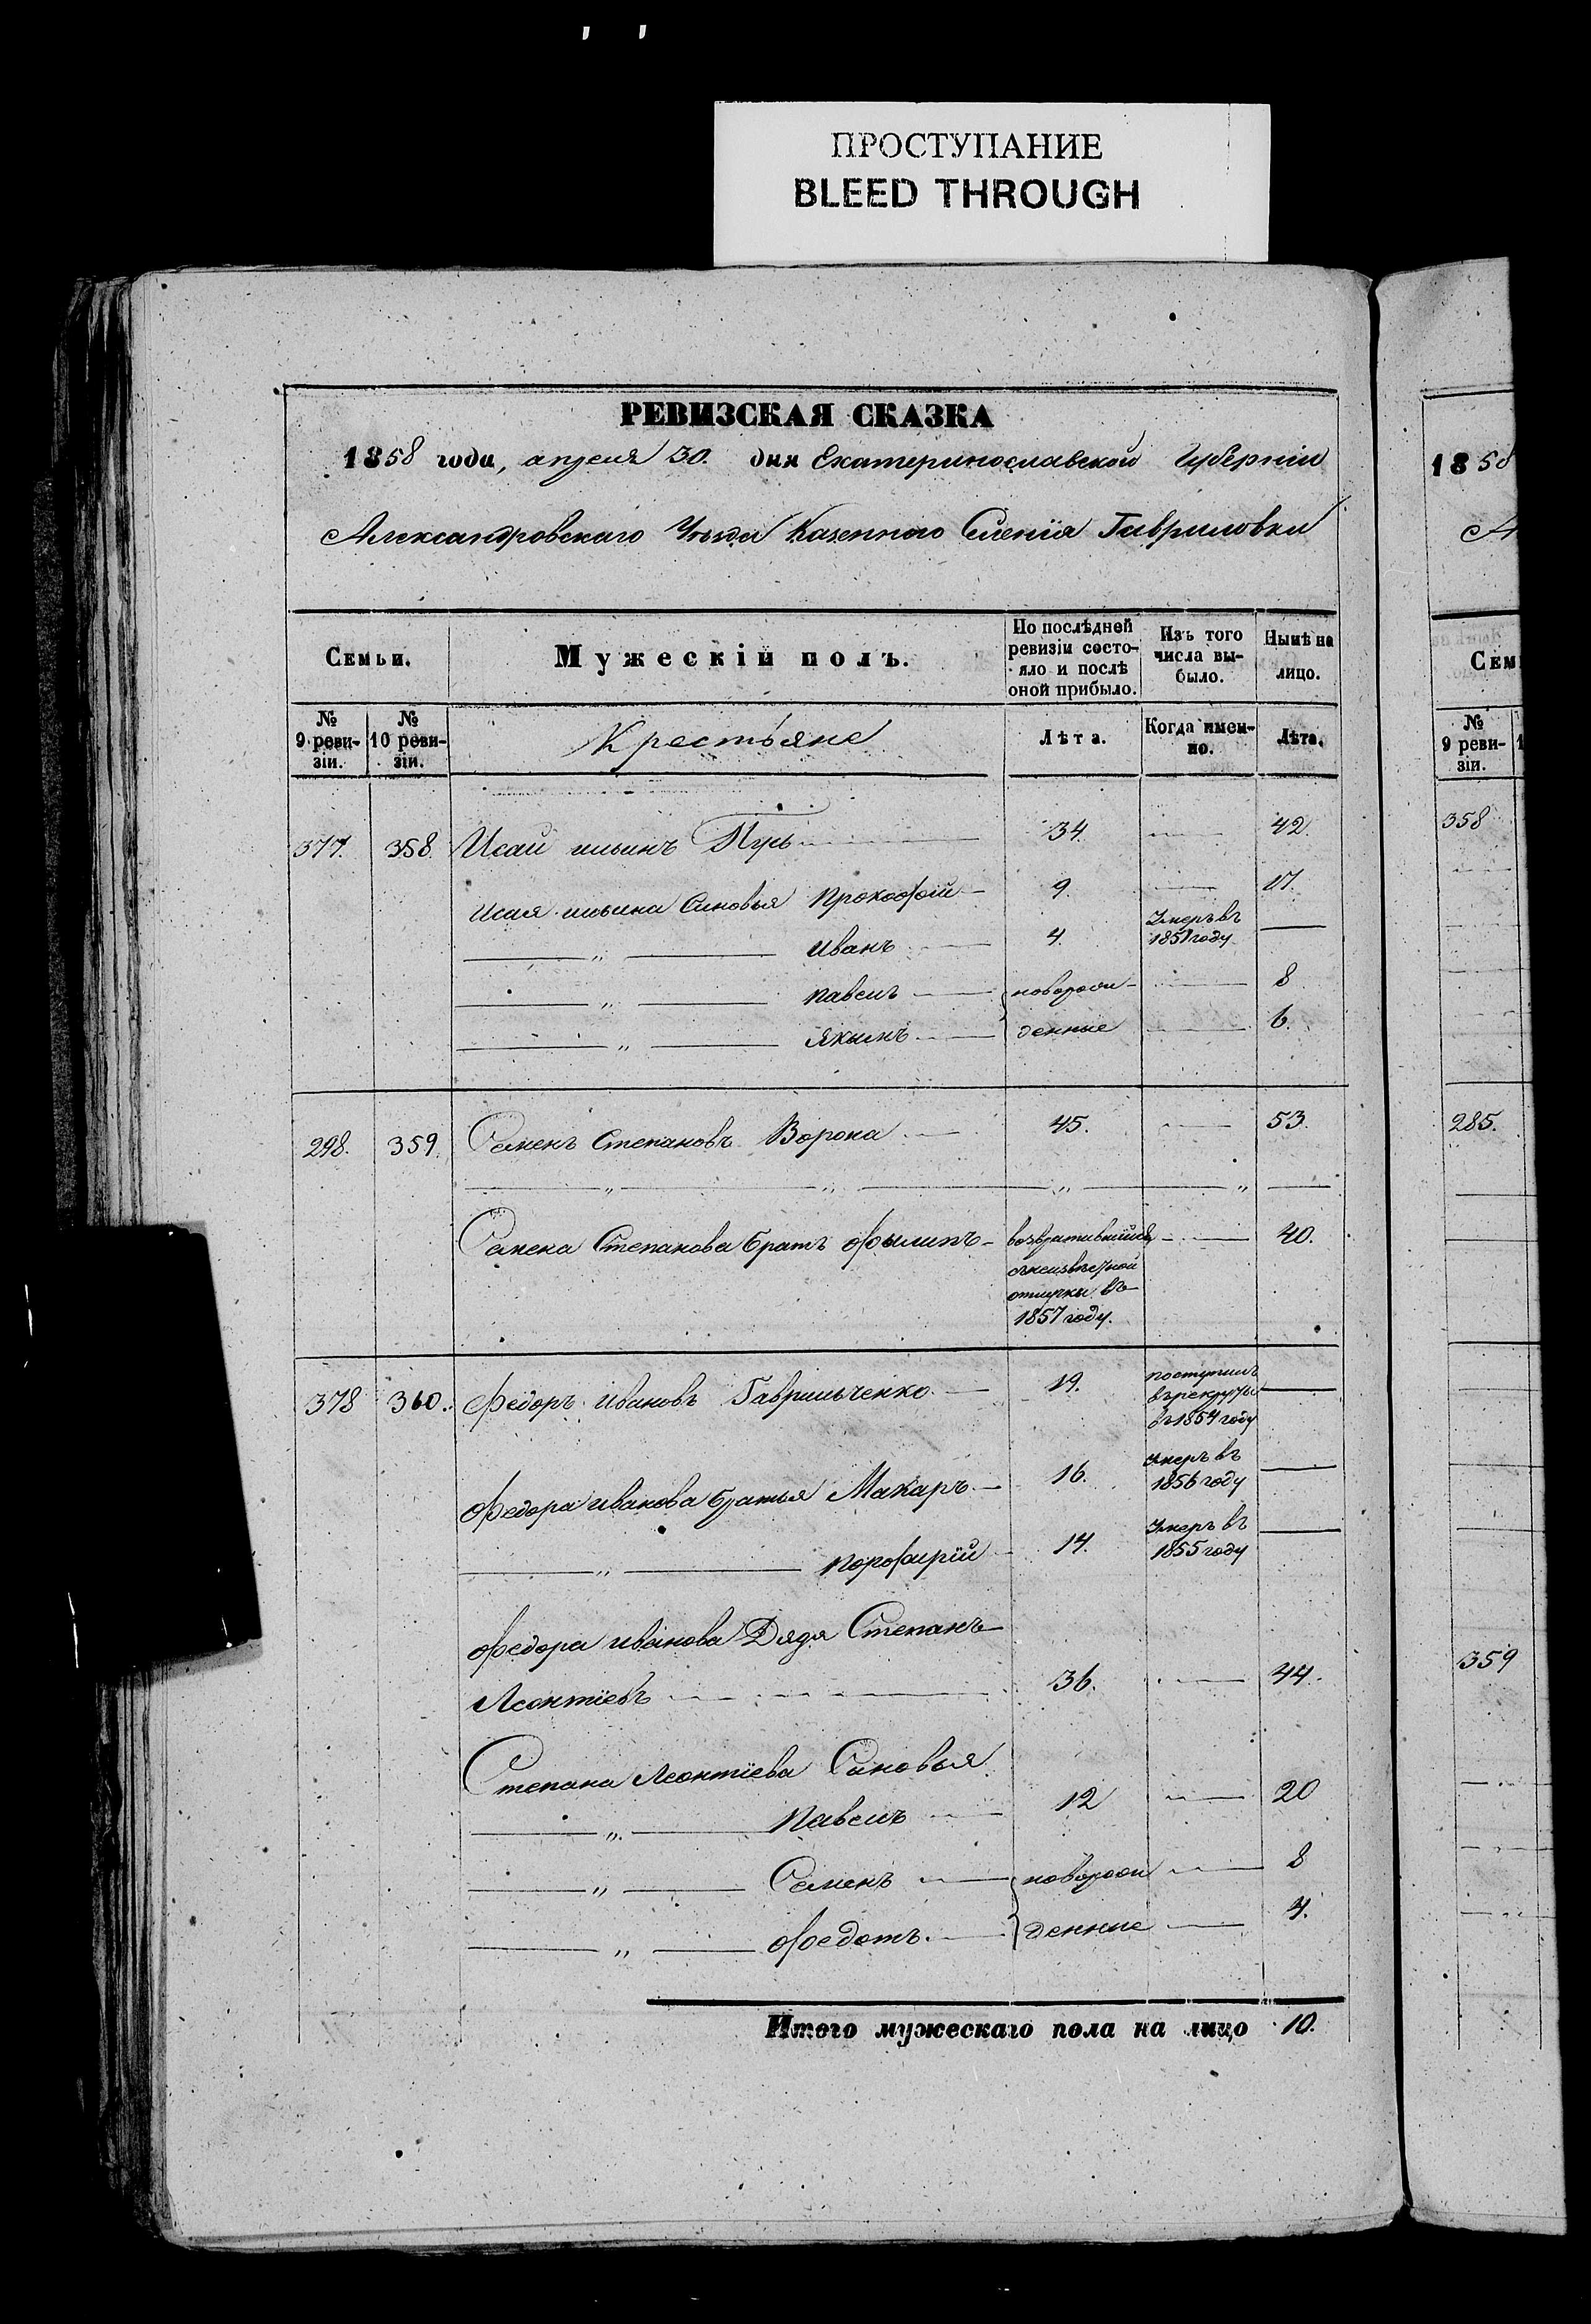 ПРОСТУПАНИЕ
BLEED THROUGH
РЕВИЗСКАЯ СКАЗКА
1858 года, апреля 30. дня Екатеринославской Губерніи
Александровскаго Уезда Казенного Селенія Гавриловки
Семьи. Мужескій полъ. По послѣдней ревизіи состояло и послѣ оной прибыло. Изъ того числа выбыло. Нынѣ на лицо.
№ 9 ревизіи. № 10 ревизіи. Крестьяне Лѣта. Когда именно. Лѣта.
377. 358. Исай ильинъ 34. — 42.
Исая ильина Синовья Прокофій — 9. — 17.
— „ — Иванъ — 4. Умеръ въ 1851 году —
— „ — павелъ — новорож- — 8
— „ — Якимъ — денные — 6.
298. 359. Семенъ Степановъ Ворона — 45. — 53.
— „ — „ — „ — „ —
Семена Степанова братъ филипъ — возвратившійся — 40.
отлучки въ
1857 году.
378 360. Федоръ Ивановъ Гаврильченко — 19. поступилъ в рекруты въ 1854 году —
Федора иванова братья Макаръ — 16. Умеръ въ 1856 году —
— „ — порфирій — 14. Умеръ въ 1855 году —
Федора иванова Дядя Степанъ
Леонтіевъ — 36. — 44.
Степана Леонтіева Сановья
— „ — Павелъ — 12 — 20
— „ — Семенъ — новорож — 8
— „ — Федотъ. — денние — 4.
Итого мужескаго пола на лицо 10.
1858
А
Сем
№
9 реви-
зіи.
358
285.
359